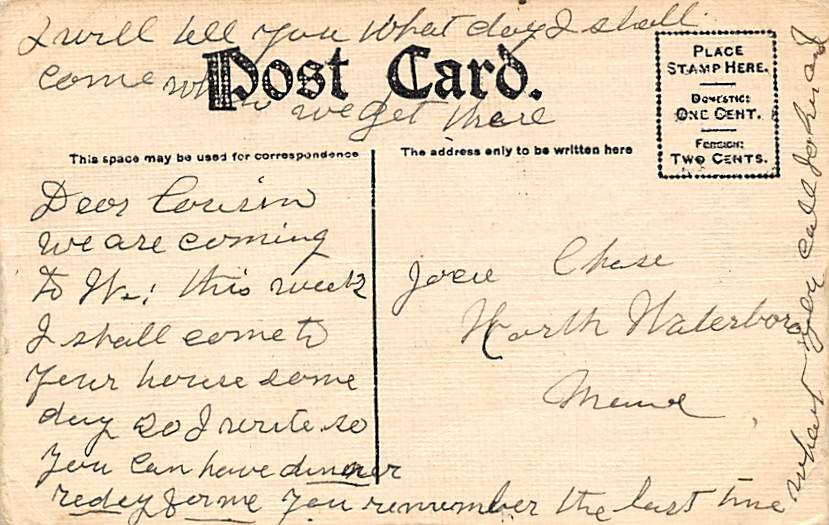 I will tell you what day I shall
come when we get there
Post Card.
PLACE
STAMP HERE.
DOMESTIC:
ONE CENT.
FOREIGN:
TWO CENTS.
This space may be used for correspondence
The address only to be written here
Dear Cousin
we are coming
to W.: this week
I shall come to
your house some
day so I write so
you can have dinner
redey for me you remember the last time
what you call John and
Josie Chase
North Waterboro
Maine